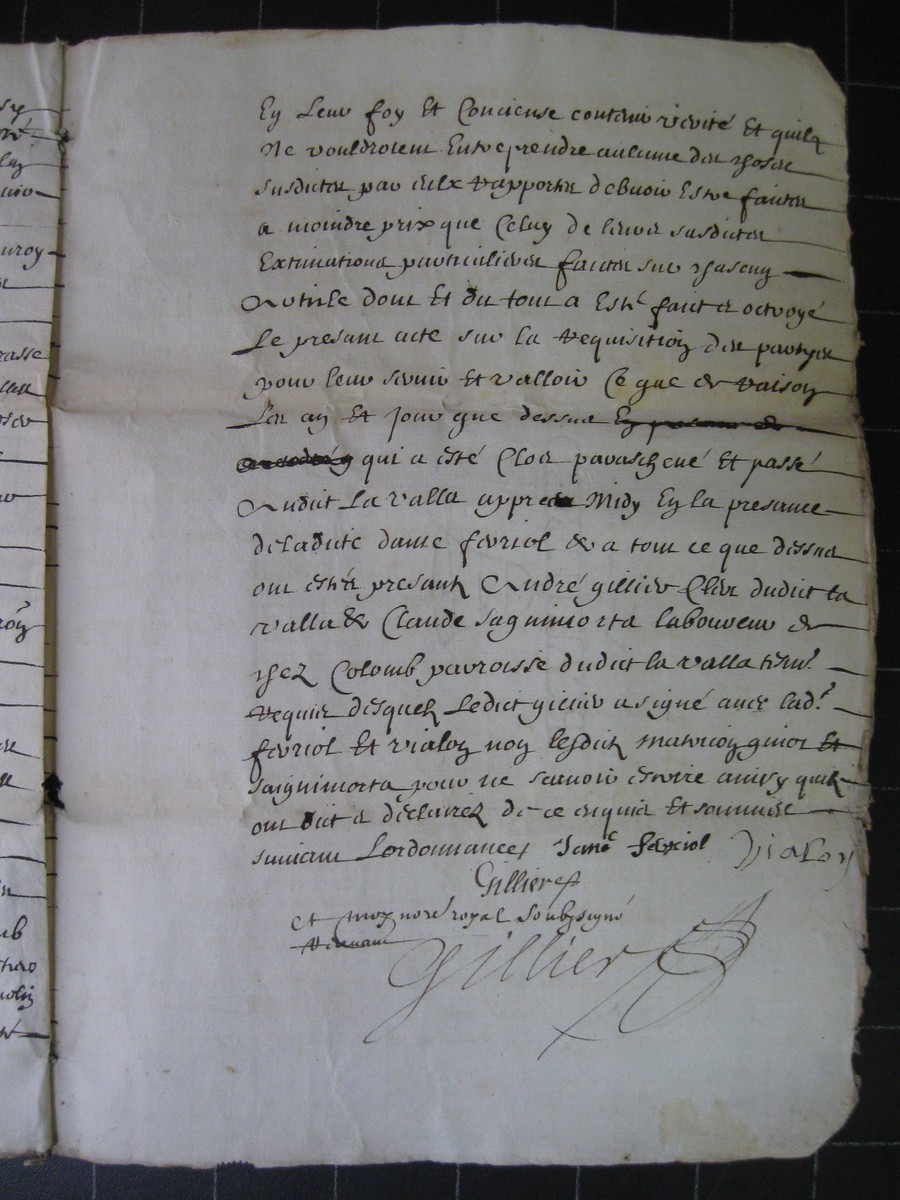 En leur foy et Conciense contenir vérité et quilz
Ne vouldroient Entreprendre aulcune des choses
susdictes par eulx rapportes debvoir Estre faictes
a moindre prix que Celuy de leurs susdictes
Extimations particulieres faictes sur chascung
Article dont et du tout a Esté faict et octroyé
Le presant acte sur la requisition des partyes
pour leur servir et valloir Ce que de raison
Les an et jour que dessus En
qui a esté Clos parascheué et passé
Audict La valla appres Midy En la presance
deladicte dame feriol & a tout ce que dessus
ont estés presantz André gillier Clerc dudict la
valla & Claude saignimorta laboureur de
chez Colomb parroisse dudict la valla tesm.
requis desquelz Ledict gillier a signé avec lad.
feriol Et vialon non lesdictz matricon guiot Et
saignimorta pour ne scavoir escrire ainsy quilz
ont dict et declairez de ce enquis Et sommés
suivant Lordonnance, Jane feriol Vialon
Gillier
et moy nore royal Soubzsigné
Gillier